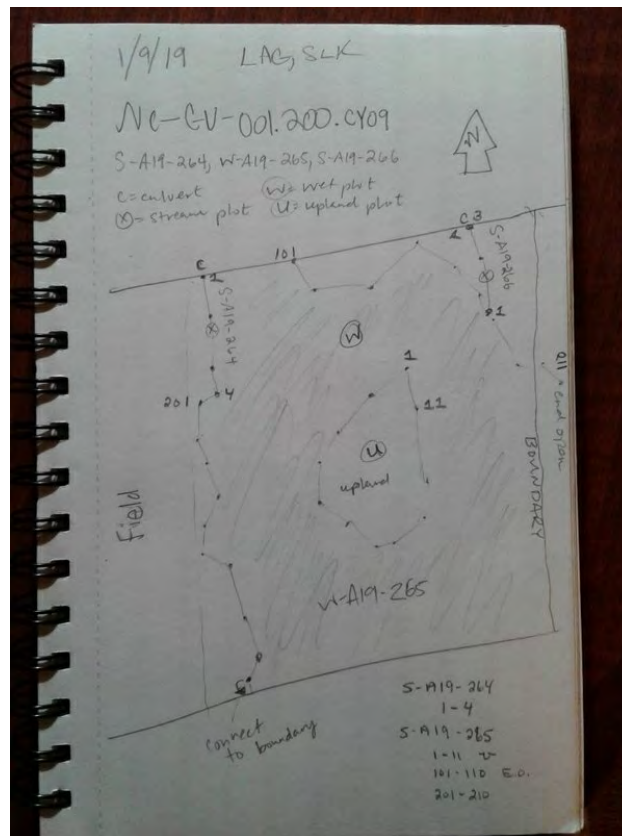 1/9/19 LAG, SLK
NC-CU-001.200.CY09
S-A19-264, W-A19-265, S-A19-266
C = culvert W = wet plot
X = stream plot U = upland plot
N
C 3
101
C
1
S-A19-266
S-A19-264
1
W
4
201
1
11
U
upland
Field
BOUNDARY
011 = end open
W-A19-265
connect
to boundary
S-A19-264
1-4
S-A19-265
1-11
101-110 E.O.
201-210